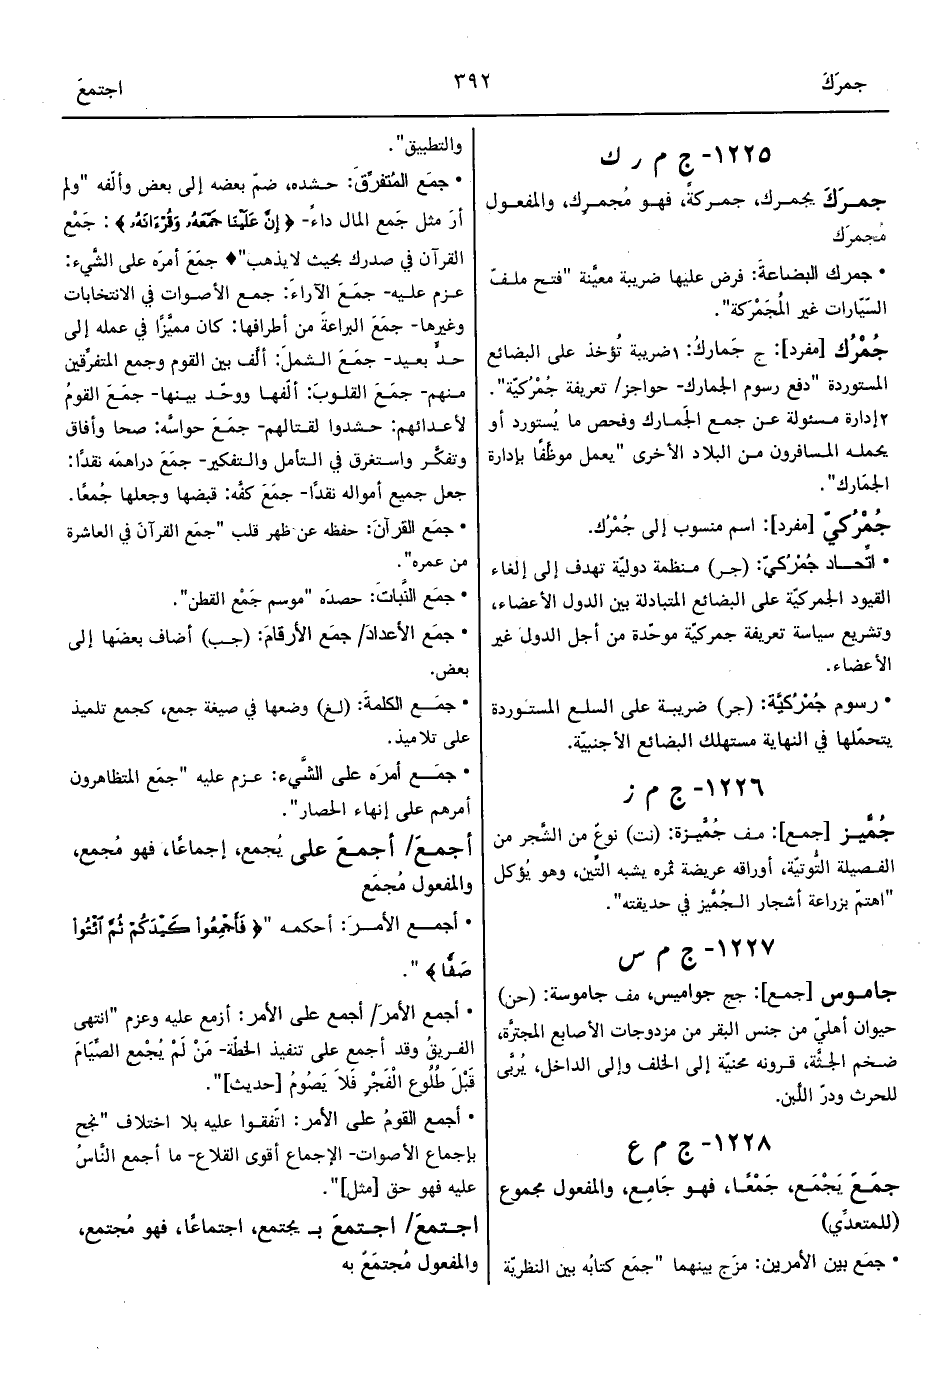 جمرَكَ
٣٩٢
اجتمعَ
١٢٢٥- ج م ر ك
جمرَكَ يجمرك، جمركةً، فهو مُجمرِك، والمفعول
مُجمرَك
• جمرك البضاعةَ: فرض عليها ضريبة معيَّنة "فتح ملفّ
السيّارات غير المُجَمْرَكة".
جُمْرُك [مفرد]: ج جَمارِكُ: ١ضريبة تُؤخذ على البضائع
المستوردة "دفع رسوم الجمارك- حواجز/ تعريفة جُمْرُكيّة".
٢إدارة مسئولة عن جمع الجَمارك وفحص ما يُستورد أو
يحمله المسافرون من البلاد الأخرى "يعمل موظّفًا بإدارة
الجَمارك".
جُمْرُكيّ [مفرد]: اسم منسوب إلى جُمْرُك.
• اتّحاد جُمْرُكيّ: (جر) منظمة دوليّة تهدف إلى إلغاء
القيود الجمركيّة على البضائع المتبادلة بين الدول الأعضاء،
وتشريع سياسة تعريفة جمركيّة موحّدة من أجل الدول غير
الأعضاء.
• رسوم جُمْرُكيَّة: (جر) ضريبة على السلع المستوردة
يتحمّلها في النهاية مستهلك البضائع الأجنبيّة.
١٢٢٦- ج م ز
جُمَّيز [جمع]: مف جُمَّيزة: (نت) نوعٌ من الشَّجر من
الفصيلة التُّوتيّة، أوراقه عريضة ثمره يشبه التِّين، وهو يُؤكل
"اهتمّ بزراعة أشجار الجُمَّيز في حديقته".
١٢٢٧- ج م س
جاموس [جمع]: جج جواميس، مف جاموسة: (حن)
حيوان أهليّ من جنس البقر من مزدوجات الأصابع المجترَّة،
ضخم الجثَّة، قرونه محنيّة إلى الخلف وإلى الداخل، يُربَّى
للحرث ودرّ اللَّبن.
١٢٢٨- ج م ع
جمَعَ يَجْمَع، جَمْعًا، فهو جَامِع، والمفعول مجموع
(للمتعدِّي)
• جمَع بين الأمرين: مزَج بينهما "جمَع كتابُه بين النظريّة
والتطبيق".
• جمَع المُتفرِّقَ: حشده، ضمّ بعضه إلى بعض وألّفه "ولم
أرَ مثل جَمع المال داءً- ﴿إِنَّ عَلَيْنَا جَمْعَهُ وَقُرْءَانَهُ﴾: جَمْع
القرآن في صدرك بحيث لا يذهب"♦ جمَعَ أمرَه على الشَّيء:
عزم عليه- جمَعَ الآراءَ: جمع الأصوات في الانتخابات
وغيرها- جمَعَ البراعةَ من أطرافها: كان مميَّزًا في عمله إلى
حدٍّ بعيد- جمَعَ الشملَ: ألّف بين القوم وجمع المتفرِّقين
منهم- جمَعَ القلوبَ: ألّفها ووحّد بينها- جمَعَ القومُ
لأعدائهم: حشدوا لقتالهم- جمَعَ حواسَّه: صحا وأفاق
وتفكَّر واستغرق في التأمل والتفكير- جمَعَ دراهمَه نقدًا:
جعل جميع أمواله نقدًا- جمَعَ كفَّه: قبضها وجعلها جُمعًا.
• جمَع القرآنَ: حفظه عن ظهر قلب "جمَع القرآنَ في العاشرة
من عمره".
• جمَع النَّباتَ: حصدَه "موسم جَمْع القطن".
• جمَع الأعدادَ/ جمَع الأرقامَ: (جب) أضاف بعضَها إلى
بعض.
• جمَع الكلمةَ: (لغ) وضعها في صيغة جمع، كجمع تلميذ
على تلاميذ.
• جمَع أمرَه على الشَّيء: عزم عليه "جمَع المتظاهرون
أمرهم على إنهاء الحصار".
أجمعَ/ أجمعَ على يُجمع، إجماعًا، فهو مُجمع،
والمفعول مُجمَع
• أجمع الأمرَ: أحكمه "﴿فَأَجْمِعُوا۟ كَيْدَكُمْ ثُمَّ ٱئْتُوا۟
صَفًّا﴾".
• أجمع الأمرَ/ أجمع على الأمر: أزمع عليه وعزم "انتهى
الفريقُ وقد أجمع على تنفيذ الخطّة- مَنْ لَمْ يُجْمِع الصِّيَامَ
قَبْلَ طُلُوعِ الْفَجْرِ فَلاَ يَصُومُ [حديث]".
• أجمع القومُ على الأمر: اتّفقوا عليه بلا اختلاف "نجح
بإجماع الأصوات- الإجماع أقوى القلاع- ما أجمع النَّاسُ
عليه فهو حق [مثل]".
اجتمعَ/ اجتمعَ بـ يجتمع، اجتماعًا، فهو مُجتمع،
والمفعول مُجتمَعٌ به